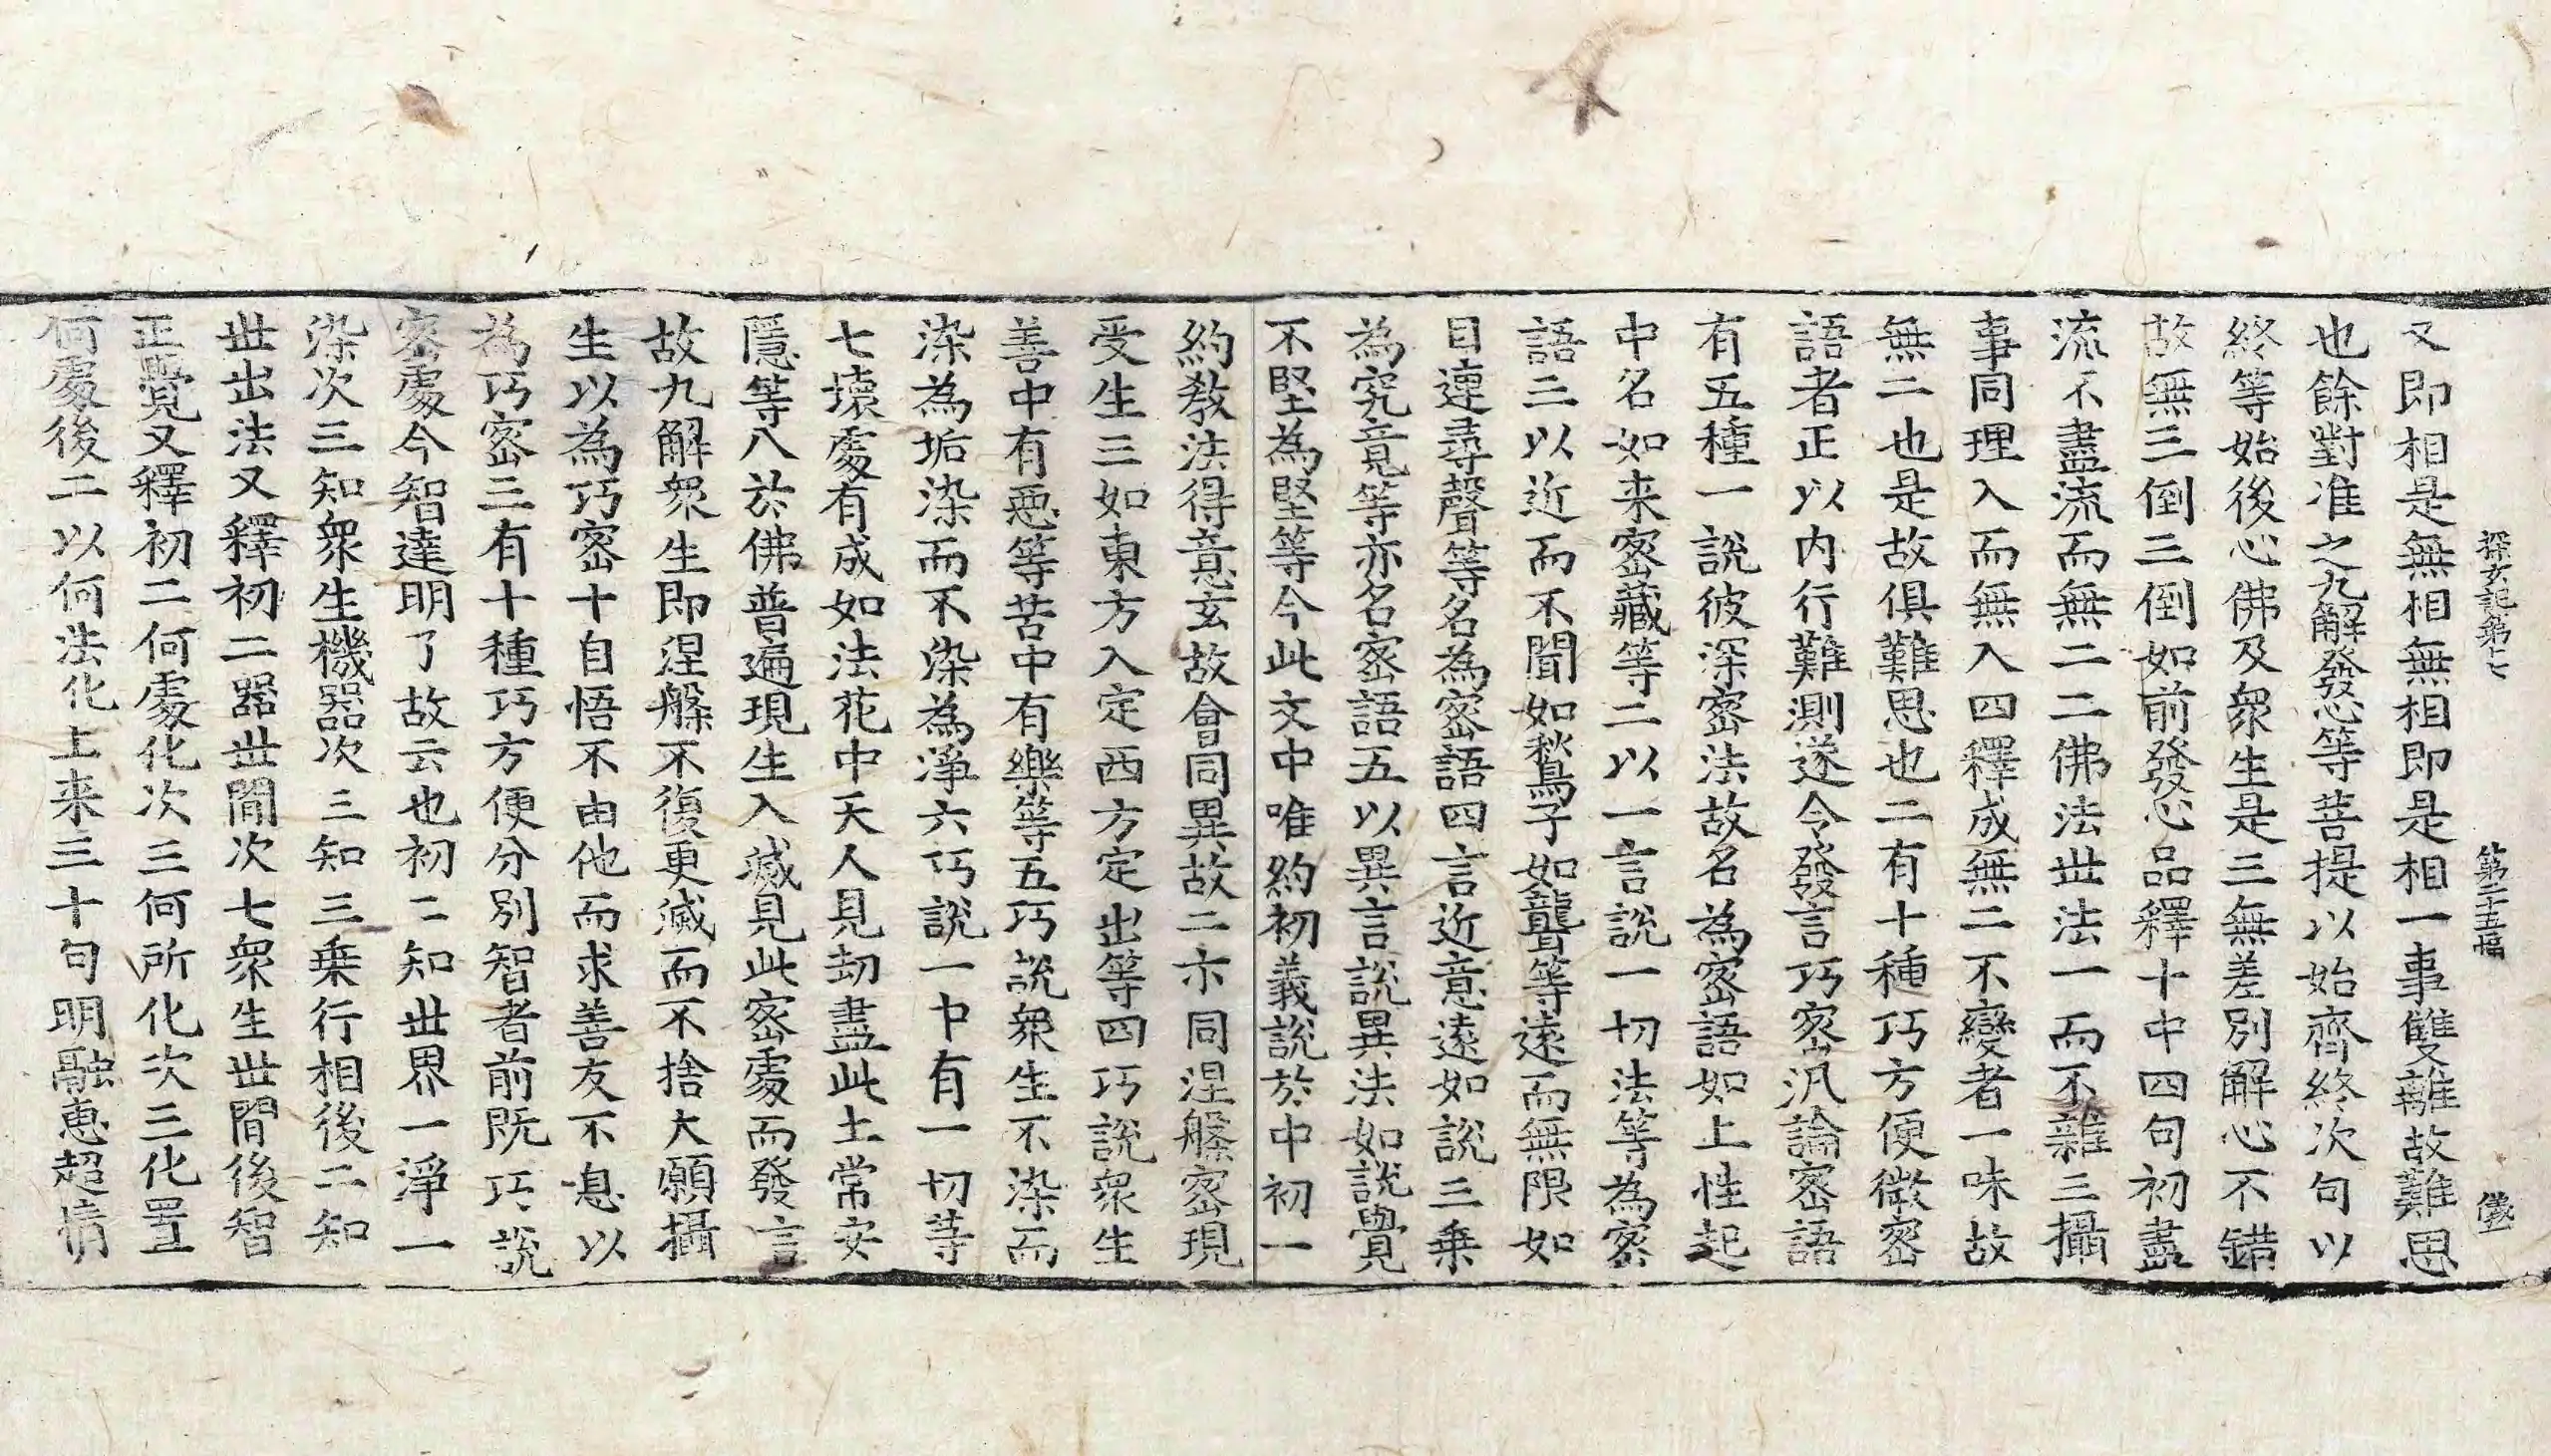 探玄記第十七 第二十五幅
又即相是無相無相即是相一事雙離故難思
也餘對准之九解發心等菩提以始齊終次句以
終等始後心佛及衆生是三無差別解心不錯
故無三倒三倒如前發心品釋十中四句初盡
流不盡流而無二二佛法世法一而不雜三攝
事同理入而無入四釋成無二不變者一味故
無二也是故俱難思也二有十種巧方便微密
語者正以内行難測遂令發言巧密汎論密語
有五種一說彼深密法故名為密語如上性起
中名如来密藏等二以一言說一切法等為密
語三以近而不聞如愁鳥子如聾等遠而無限如
目連尋聲等名為密語四言近意遠如說三乗
為究竟等亦名密語五以異言說異法如說覺
不堅為堅等今此文中唯約初義說於中初一
約教法得意玄故會同異故二亦同涅槃密現
受生三如東方入定西方定出等四巧說衆生
善中有惡等苦中有樂等五巧說衆生不染而
染為垢染而不染為淨六巧說一中有一切等
七壞處有成如法花中天人見劫盡此土常安
隱等八於佛普遍現生入滅見此密處而發言
故九解衆生即涅槃不復更滅而不捨大願攝
生以為巧密十自悟不由他而求善友不息以
為巧密三有十種巧方便分別智者前既巧說
密處今智達明了故云也初二知世界一淨一
染次三知衆生機器次三知三乗行相後二知
世出法又釋初二器世間次七衆生世間後智
正覺又釋初二何處化次三何所化次三化置
何處後二以何法化上来三十句明融惠超情